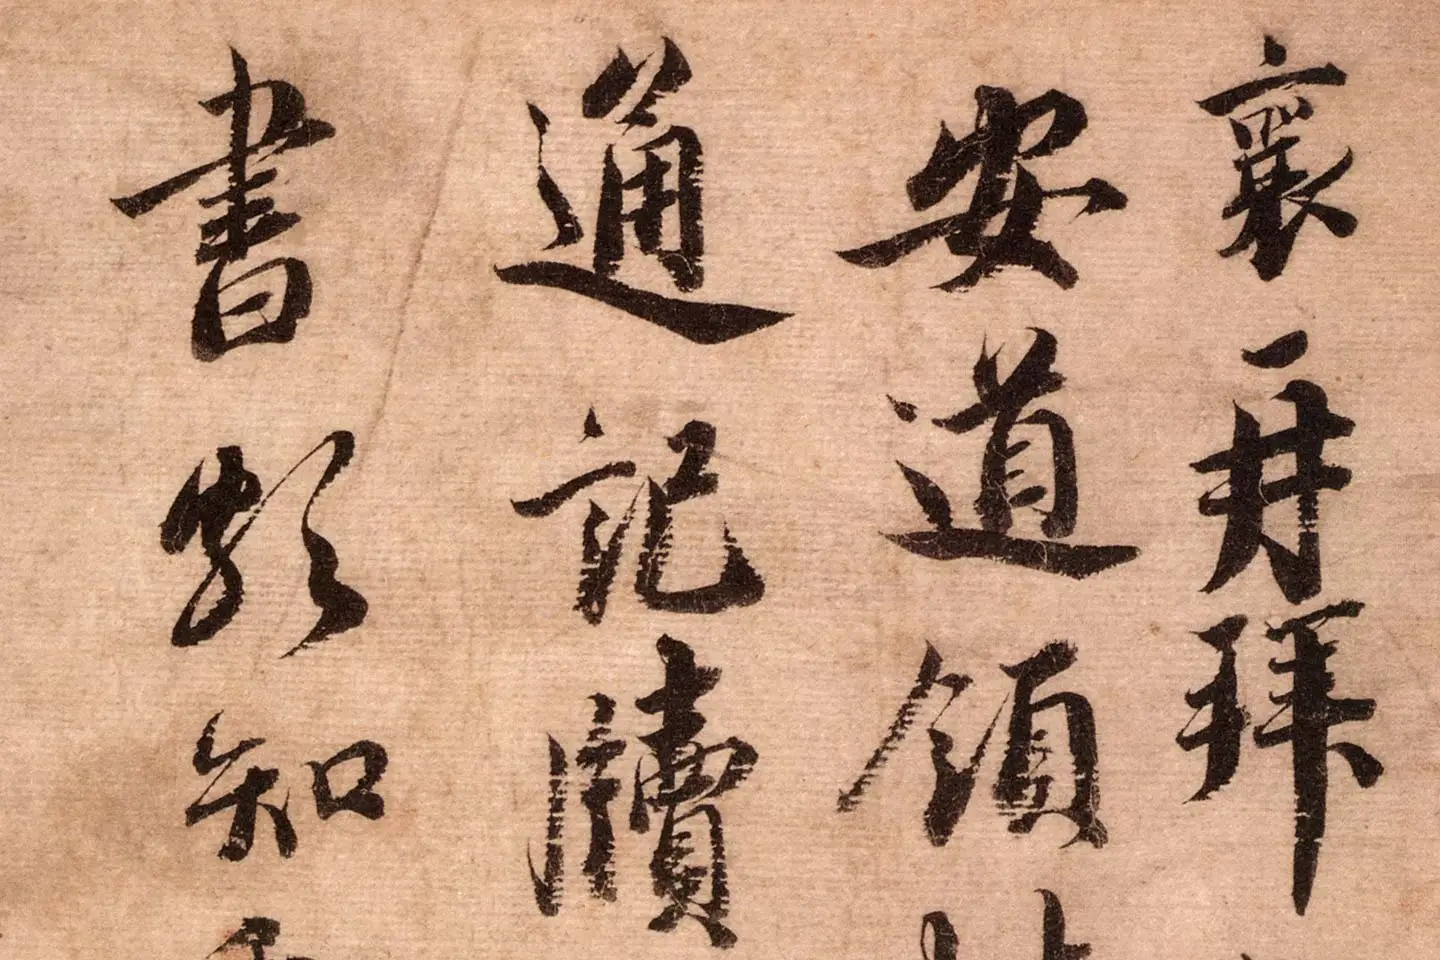 襄再拜
安道領
通記牘
書頗知